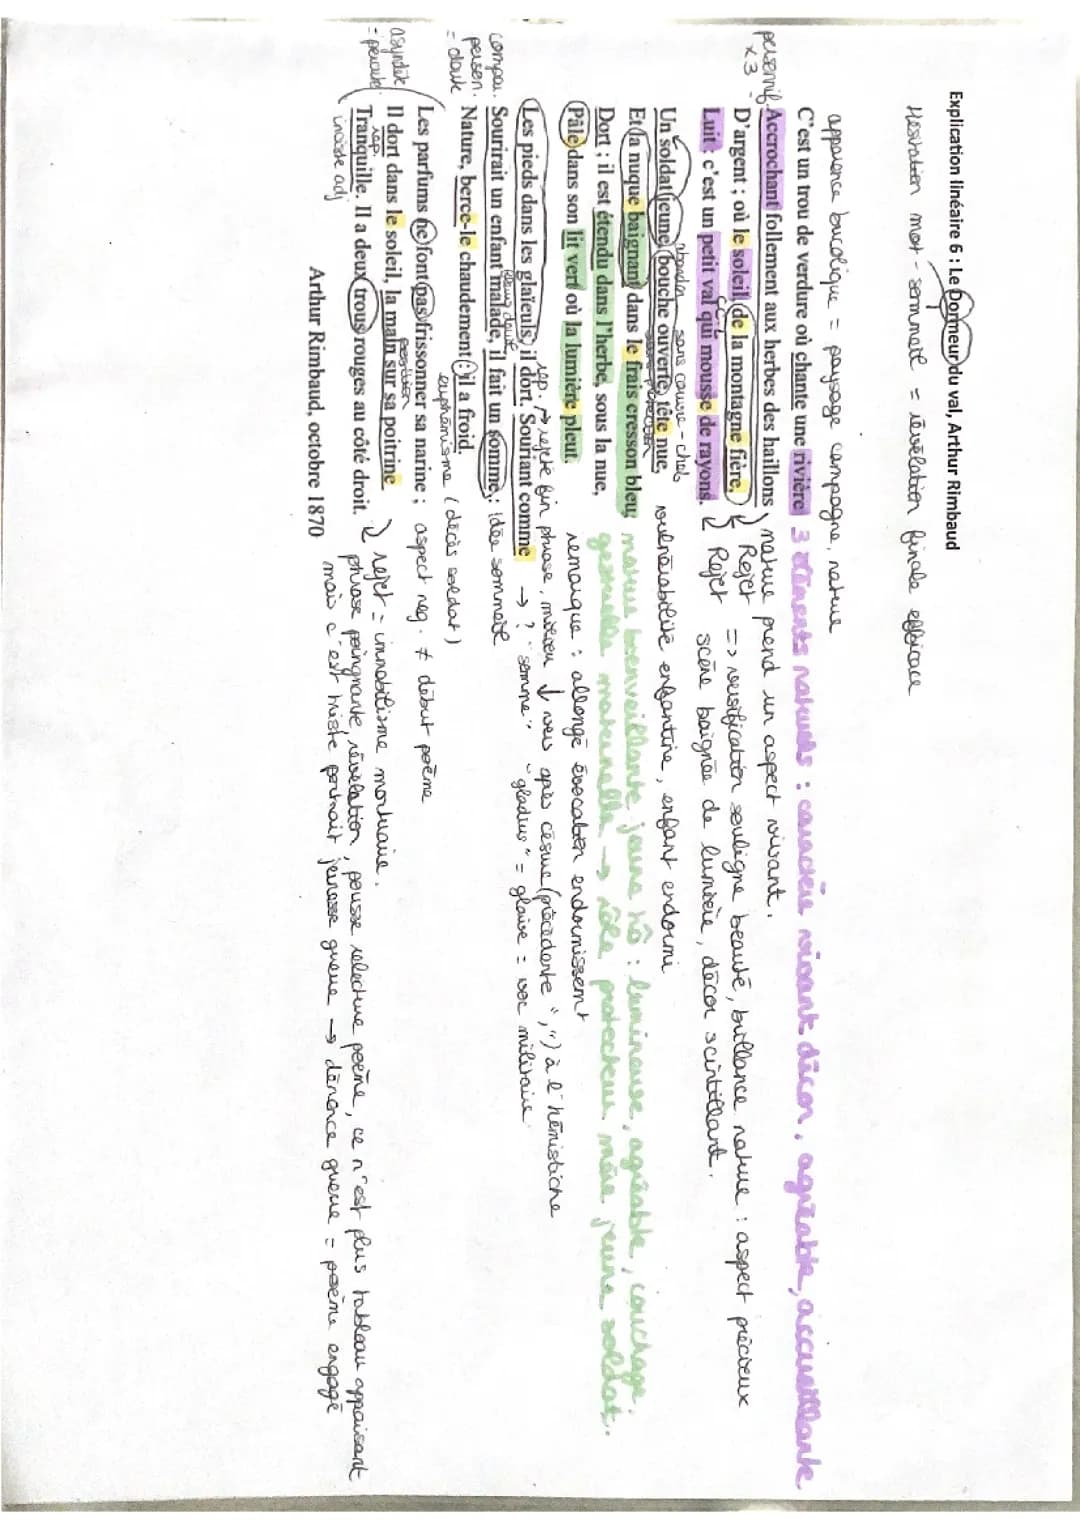 Explication linéaire 6 : Le Dormeur du val, Arthur Rimbaud
Hésitation mort - sommeil = révélation finale efficace
apparence bucolique = paysage campagne, nature
C'est un trou de verdure où chante une rivière 3 éléments naturels : caractère vivant décor, agréable, accueillante
personnif. x3 Accrochant follement aux herbes des haillons nature prend un aspect vivant.
D'argent ; où le soleil, de la montagne fière, Rejet => versification souligne beauté, brillance nature : aspect précieux
Luit : c'est un petit val qui mousse de rayons. Rejet scène baignée de lumière, décor scintillant.
abandon sans couvre-chef
Un soldat jeune, bouche ouverte, tête nue, vulnérabilité enfantine, enfant endormi
Et la nuque baignant dans le frais cresson bleu, nature bienveillante jeune hô : lumineuse, agréable, couchage.
Dort ; il est étendu dans l'herbe, sous la nue, maternelle → rôle protecteur mère jeune soldat.
Pâle dans son lit vert où la lumière pleut. remarque : allongé évocation endormissemt
rép. → rejeté fin phrase, milieu vers après césure (précédente ",") à l'hémistiche
Les pieds dans les glaïeuls, il dort. Souriant comme → ? "semme" "gladius" = glaive = voc militaire
compa. Sourirait un enfant malade, il fait un somme : idée sommeil
person. = doute Nature, berce-le chaudement : il a froid.
euphémisme (décès soldat)
Les parfums ne font pas frissonner sa narine ; aspect neg. ≠ début poème
asyndète Il dort dans le soleil, la main sur sa poitrine rejet = immobilisme mortuaire.
rép. position
Tranquille. Il a deux trous rouges au côté droit. phrase poingnante, révélation, pousse relecture poème, ce n'est plus tableau appaisant
incise adj mais c'est triste portrait jeunesse guerre → dénonce guerre = poème engagé
Arthur Rimbaud, octobre 1870